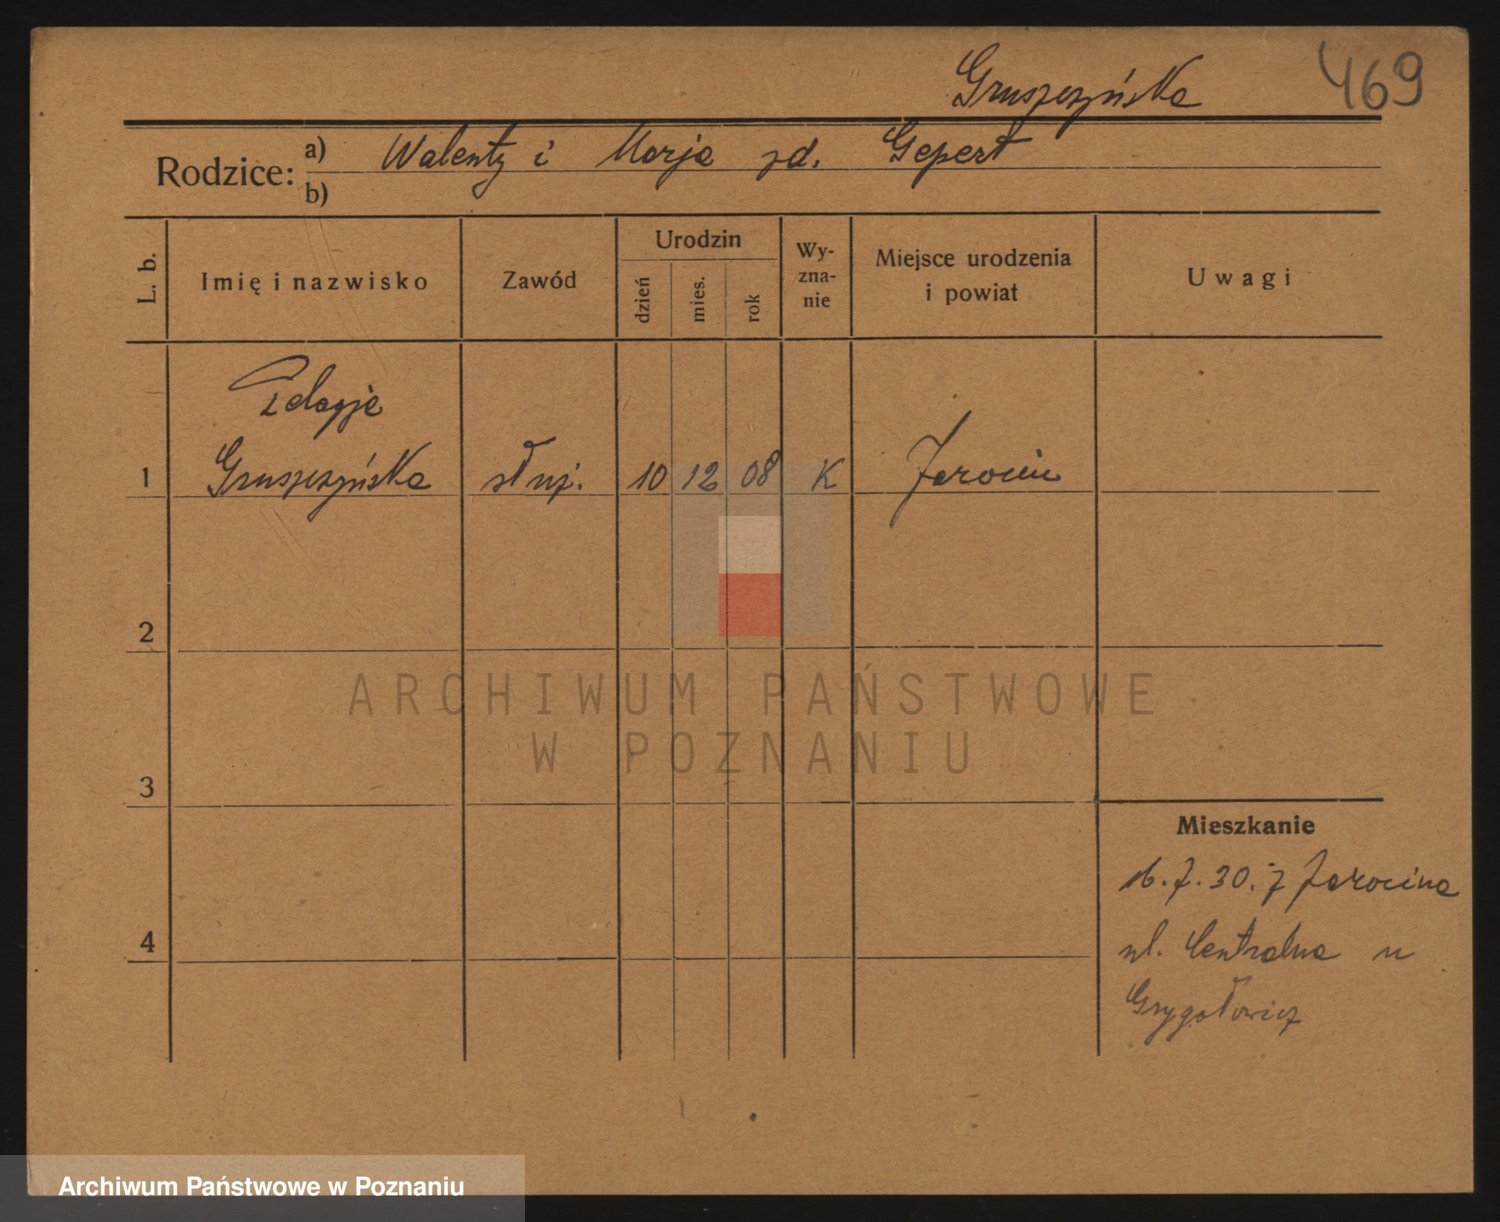 Gruszczyńska 469
Rodzice: a) Walenty i Marja zd. Gepert
b)
L. b. Imię i nazwisko Zawód Urodzin dzień mies. rok Wy-zna-nie Miejsce urodzenia i powiat Uwagi
Pelagja
1 Gruszczyńska służ. 10 12 08 K Jarocin
2
ARCHIWUM PAŃSTWOWE
W POZNANIU
3
Mieszkanie
16.7.30. z Jarocina
4 ul. Centralna u
Grygołowicz
Archiwum Państwowe w Poznaniu